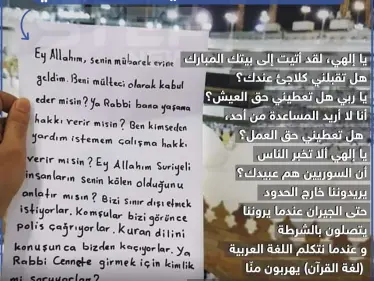 Ey Allahım, senin mübarek evine
geldim. Beni mülteci olarak kabul
eder misin? Ya Rabbi bana yaşama
hakkı verir misin? Ben kimseden
yardım istemem çalışma hakkı
verir misin? Ey Allahım Suriyeli
insanların senin kölen olduğunu
anlatır mısın? Bizi sınır dışı etmek
istiyorlar. Komşular bizi görünce
polis çağrıyorlar. Kuran dilini
konuşunca bizden kaçıyorlar. Ya
Rabbi Cennete girmek için kimlik
يا إلهي، لقد أتيت إلى بيتك المبارك
هل تقبلني كلاجئ عندك؟
يا ربي هل تعطيني حق العيش؟
أنا لا أريد المساعدة من أحد،
هل تعطيني حق العمل؟
يا إلهي ألا تخبر الناس
أن السوريين هم عبيدك؟
يريدوننا خارج الحدود
حتى الجيران عندما يروننا
يتصلون بالشرطة
و عندما نتكلم اللغة العربية
(لغة القرآن) يهربون منّا